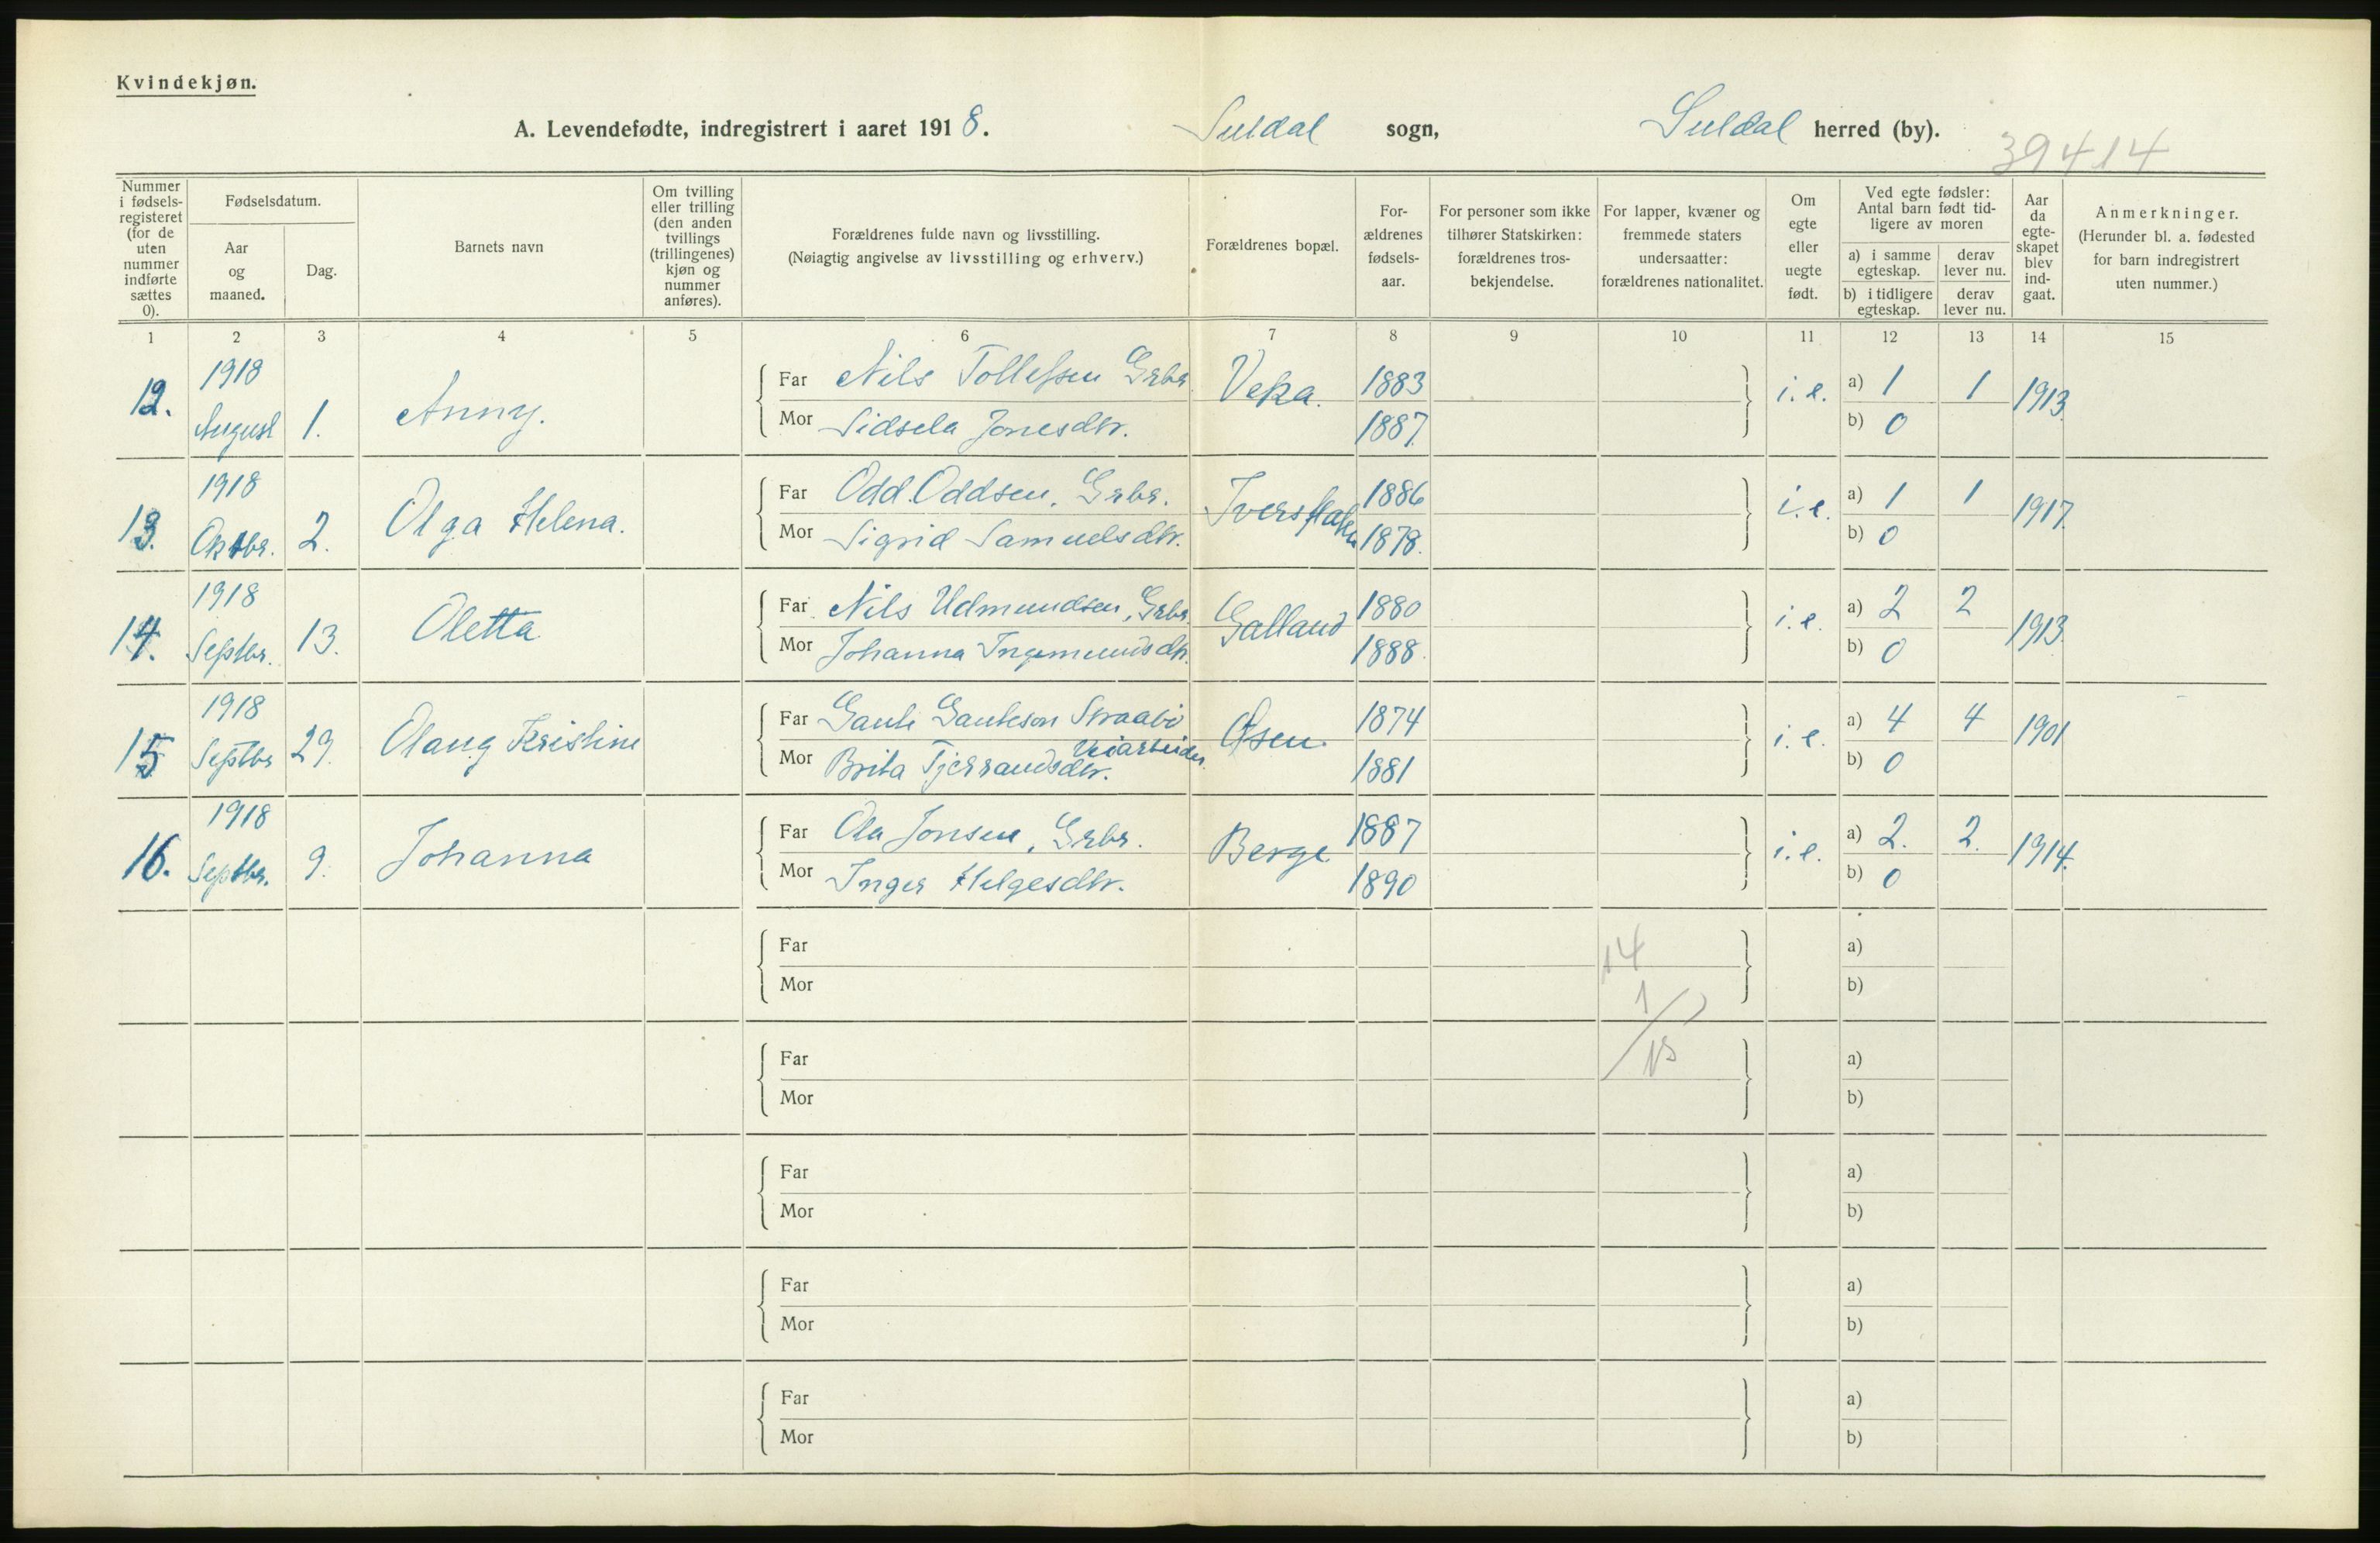 Kvindekjøn.
A. Levendefødte, indregistrert i aaret 1918. Suldal sogn, Suldal herred (by).
39414
Nummer i fødsels-registeret (for de uten nummer indførte sættes 0).
Fødselsdatum.
Aar og maaned.
Dag.
Barnets navn
Om tvilling eller trilling (den anden tvillings (trillingenes) kjøn og nummer anføres).
Forældrenes fulde navn og livsstilling.
(Nøiagtig angivelse av livsstilling og erhverv.)
Forældrenes bopæl.
For-ældrenes fødsels-aar.
For personer som ikke tilhører Statskirken: forældrenes tros-bekjendelse.
For lapper, kvæner og fremmede staters undersaatter: forældrenes nationalitet.
Om egte eller uegte født.
Ved egte fødsler: Antal barn født tid-ligere av moren
a) i samme egteskap.
derav lever nu.
b) i tidligere egteskap.
derav lever nu.
Aar da egte-skapet blev ind-gaat.
Anmerkninger.
(Herunder bl. a. fødested for barn indregistrert uten nummer.)
1 2 3 4 5 6 7 8 9 10 11 12 13 14 15
12. 1918 August 1. Anny. Far Nils Tollefsen Grbr. Veka. 1883 i. e. a) 1 1 1913.
Mor Sidsela Jonesdtr. 1887. b) 0
13. 1918 Oktbr. 2. Olga Helena. Far Odd Oddsen, Grbr. 1886 i. e. a) 1 1 1917.
Mor Sigrid Samuelsdtr. 1878. b) 0
14. 1918 Septbr. 13. Oletta Far Nils Udmundsen, Grbr. Galland 1880 i. e. a) 2 2 1913.
Mor Johanna Ingemundsdtr. 1888. b) 0
15 1918 Septbr 29. Olaug Kristine Far Gaute Gauteson Straabø Veiarbeider. Osen. 1874 i. e. a) 4 4 1901
Mor Brita Tjerrandsdtr. 1881 b) 0
16. 1918 Septbr. 9. Johanna Far Ola Jonsen, Grbr. Berge. 1887 i. e. a) 2. 2. 1914.
Mor Inger Helgesdtr. 1890 b) 0
Far a)
Mor b)
14
1
15
Far a)
Mor b)
Far a)
Mor b)
Far a)
Mor b)
Far a)
Mor b)